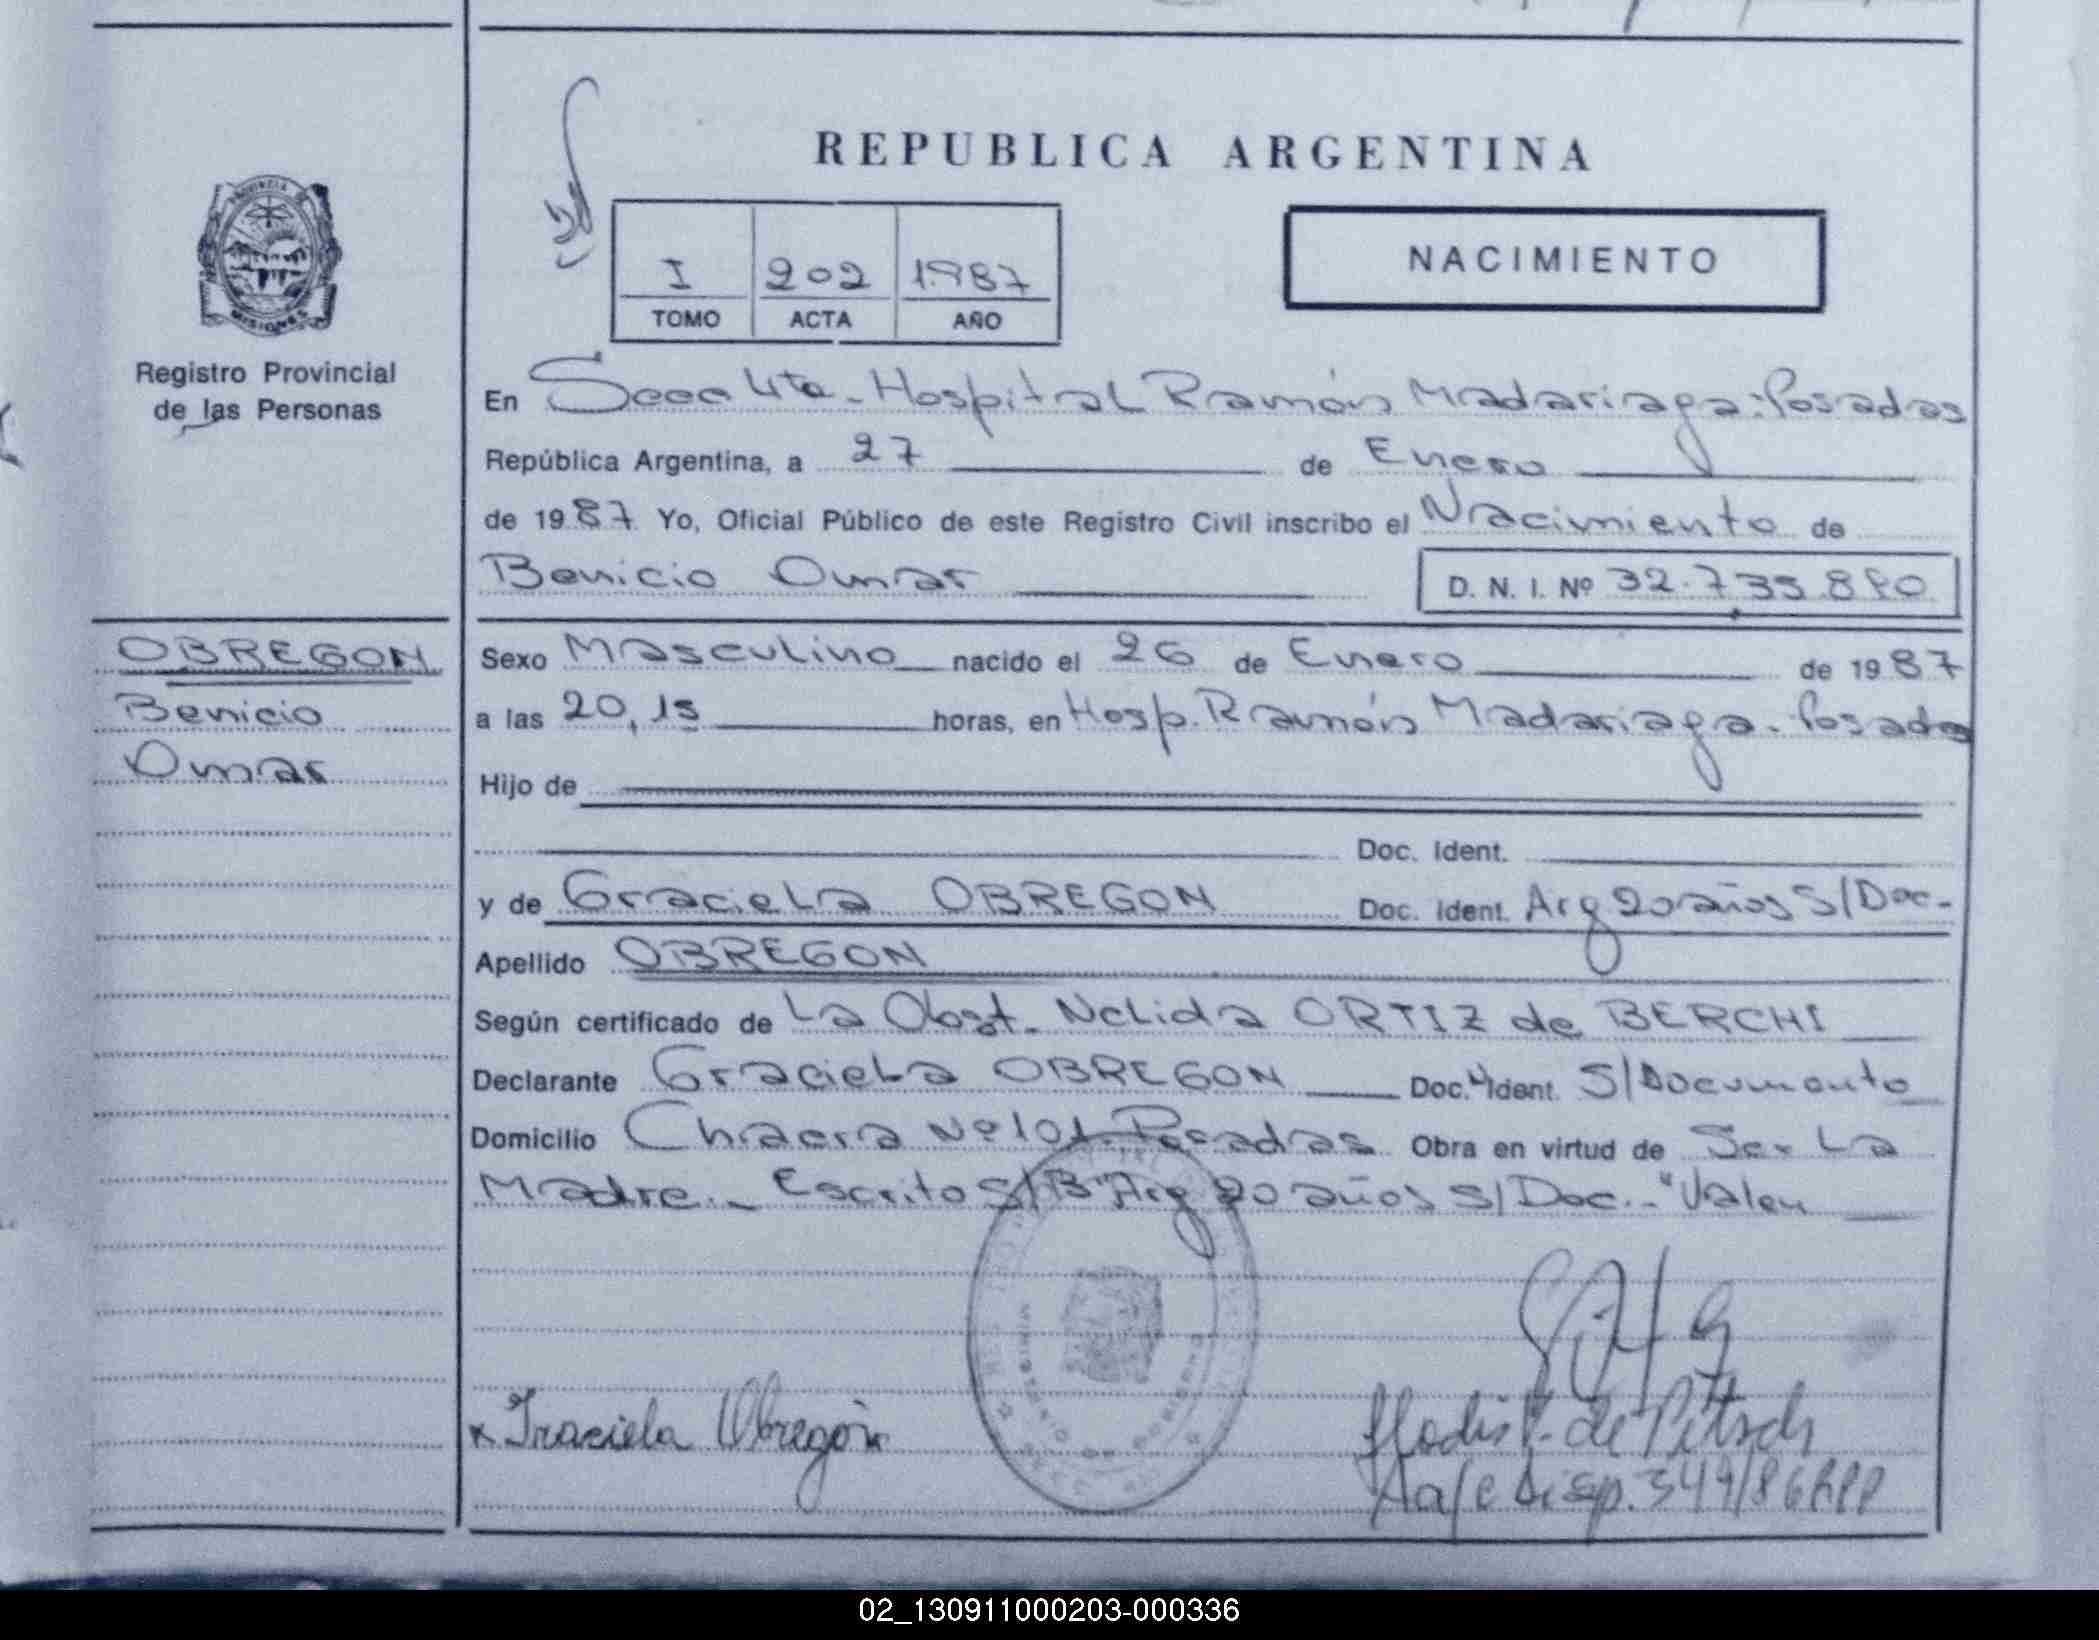 REPUBLICA ARGENTINA
NACIMIENTO
I 202 1987
TOMO ACTA AÑO
MISIONES
Registro Provincial
de las Personas
En Secc 4ta - Hospital Ramón Madariaga - Posadas
República Argentina, a 27 de Enero
de 1987 Yo, Oficial Público de este Registro Civil inscribo el Nacimiento de
Benicio Omar D. N. I. Nº 32.735.890
OBREGON
Benicio
Omar
Sexo Masculino nacido el 26 de Enero de 1987
a las 20,15 horas, en Hosp. Ramón Madariaga - Posadas
Hijo de
Doc. Ident.
y de Graciela OBREGON Doc. Ident. Arg 20 años S/Doc.-
Apellido OBREGON
Según certificado de La Obst. Nelida ORTIZ de BERCHI
Declarante Graciela OBREGON Doc. Ident. S/Documento
Domicilio Chacra Nº 101 - Posadas Obra en virtud de Ser La
Madre.- Escrito S/B "Arg 20 años S/Doc.-" Valen
x Graciela Obregón
de Pitsch
Disp. 349/86 RPP
02_130911000203-000336